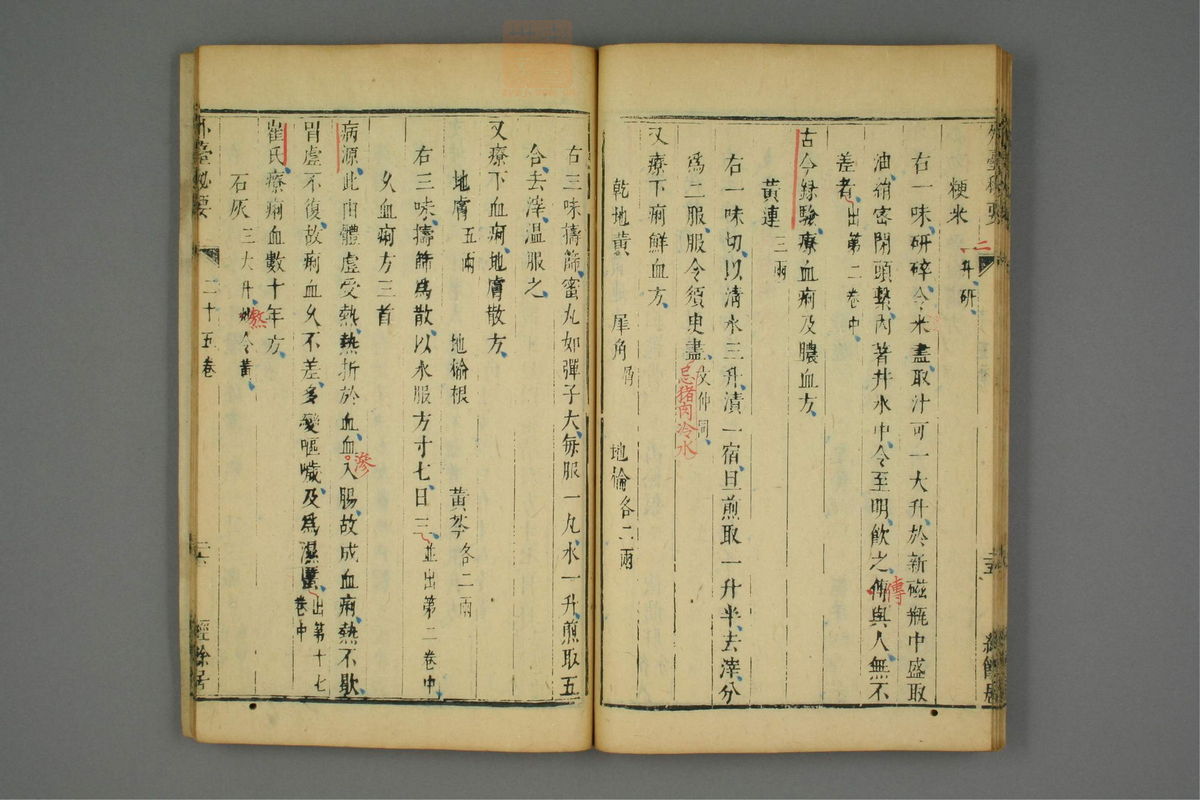 粳米 一二升研
右一味研碎令米盡取汁可一大升於新磁瓶中盛取
油絹密閉頭繫內著井水中令至明飲之傳傳與人無不
差者出第二卷中
古今錄驗療血痢及膿血方
黃連三兩
右一味切以清水三升漬一宿旦煎取一升半去滓分
為二服服令須臾盡忌猪肉冷水 文仲同
又療下痢鮮血方
乾地黃 犀角屑 地榆各二兩
右三味擣篩蜜丸如彈子大每服一丸水一升煎取五
合去滓溫服之
又療下血痢地膚散方
地膚五兩 地榆根 黃芩各二兩
右三味擣篩為散以水服方寸匕日三並出第二卷中
久血痢方三首
病源此由體虛受熱熱折於血血滲入腸故成血痢熱不歇
胃虛不復故痢血久不差多變嘔噦及為濕䘌出第十七
卷中
崔氏療痢血數十年方
石灰三大升熬令黃
外臺秘要 二十五卷 二六 經餘居
二五 經餘居